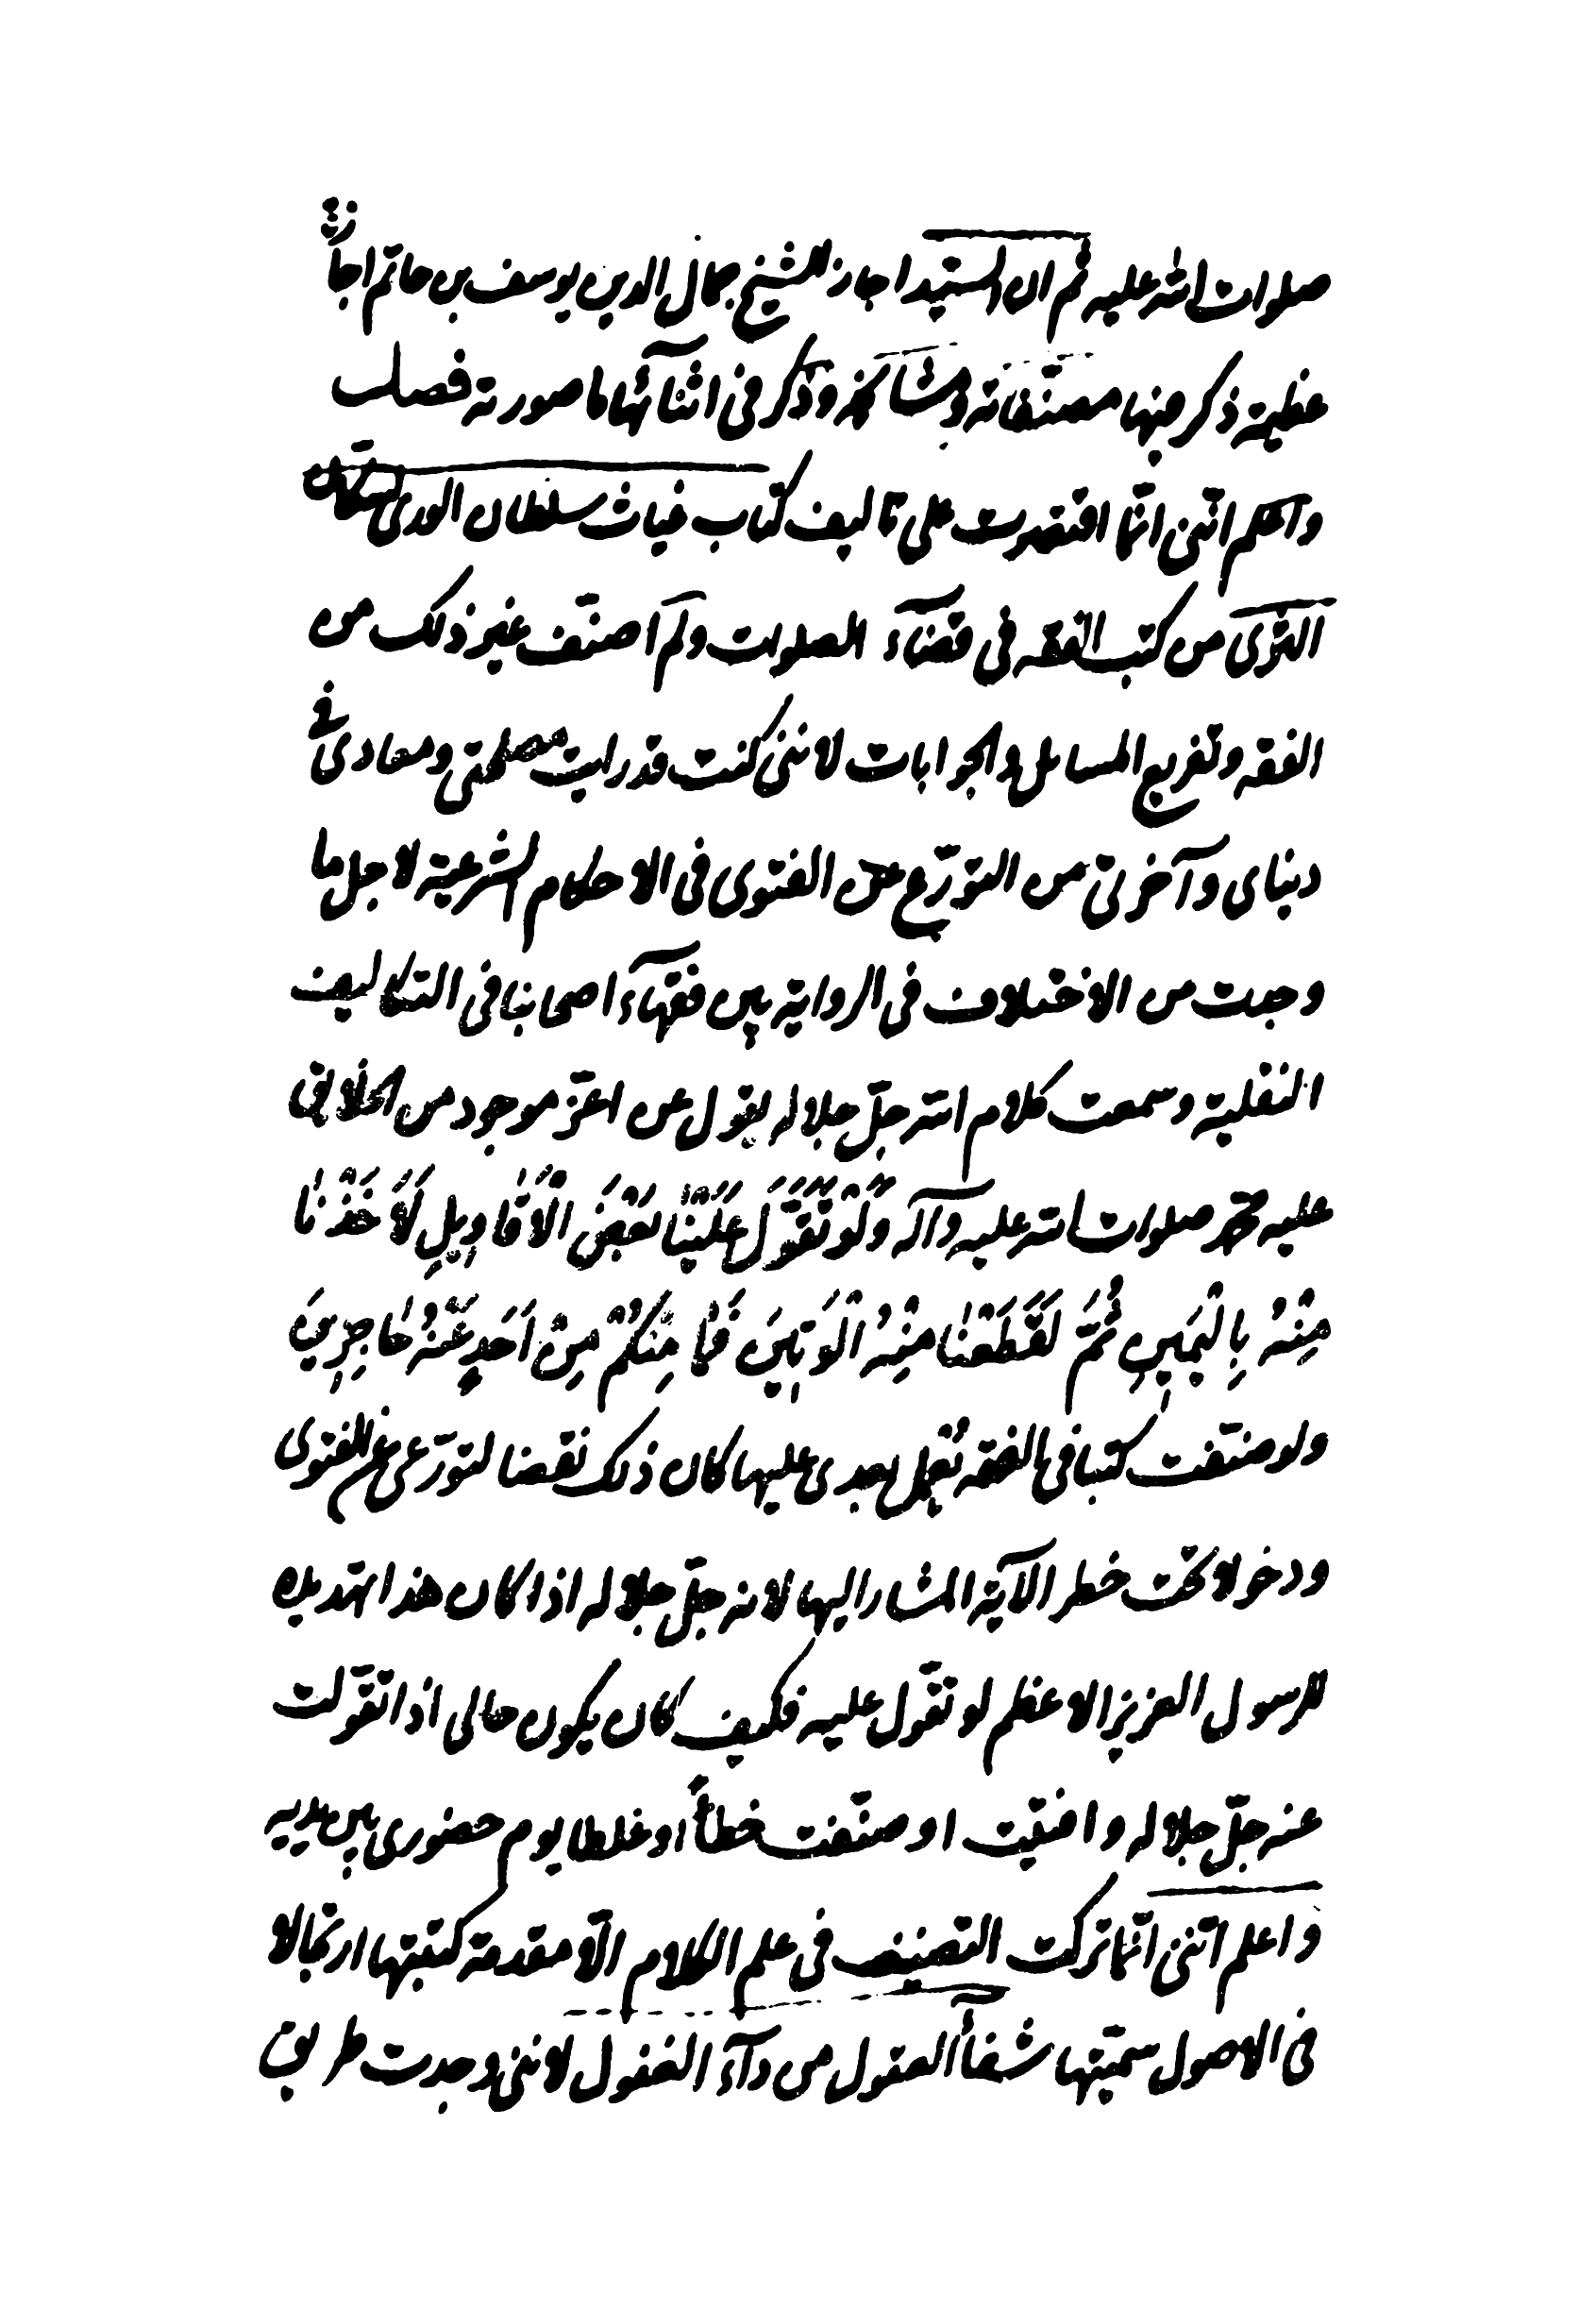 صلوات الله عليه ثم ان السيّد اجاز للشيخ جمال الدين يوسف بن حاتم اجازة
عظيمة ذكر فيها مصنّفاته ومشائخه وذكر فى اثنائها ما صورته فصل
واعلم انّنى انّما اقتصرت على تاليف كتاب غياث سلطان الورى لسكان
الثرى من كتب الفقه فى قضآء الصلوات ولم اصنّف غير ذلك من
الفقه وتفريع المسائل والجوابات لاننى كنت قد رايت مصلحتى ومعادى فى
دنياى وآخرتى من التورّع عن الفتوى فى الاحكام الشرعيّة لاجل ما
وجدت من الاختلاف فى الرواية بين فقهآء اصحابنا فى التكاليف
النفلية وسمعت كلام الله جلّ جلاله يقول عن اعزّ موجود من الخلائق
عليه محمد صلوات الله عليه وآله وَلَوْ تَقَوَّلَ عَلَيْنَا بَعْضَ الْاَقَاوِيلِ لَاَخَذْنَا
مِنْهُ بِالْيَمِينِ ثُمَّ لَقَطَعْنَا مِنْهُ الْوَتِينَ فَمَا مِنْكُمْ مِنْ اَحَدٍ عَنْهُ حَاجِزِينَ
ولو صنّفت كتبا فى الفقه يُعمل بعدى عليها كان ذلك نقضا لتورّعى عن الفتوى
ودخولا تحت خطر الآية المشار اليها لانه جلّ جلاله اذا كان هذا تهديده
للرسول العزيز الاعظم لو تقوّل عليه فكيف كان يكون حالى اذا تقوّلت
عنه جلّ جلاله وافتيت او صنّفت خطأً او غلطا يوم حضورى بين يديه
واعلم انّنى انّما تركت التصنيف فى علم الكلام الّا مقدمة كتبتها ارتجالا
فى الاصول سمّيتها شفآء العقول من دآء الفضول لاننى وجدت طريق